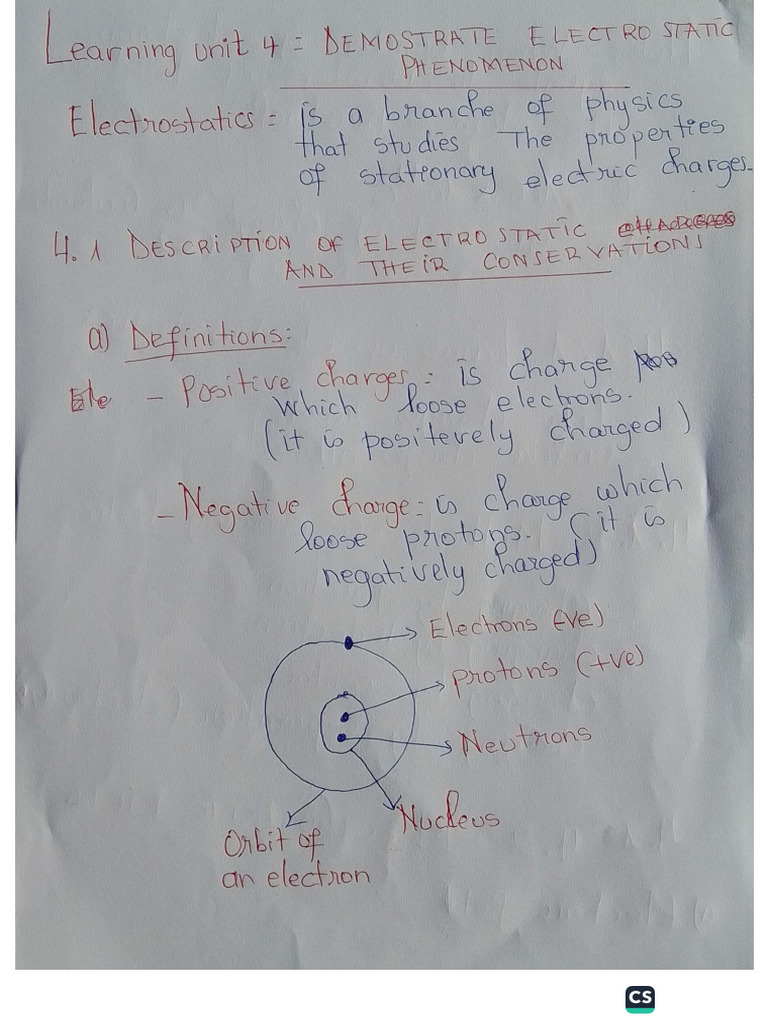 Learning unit 4 = DEMOSTRATE ELECTROSTATIC
PHENOMENON
Electrostatics = is a branche of physics
that studies The properties
of stationary electric charges.
4.1 DESCRIPTION OF ELECTROSTATIC CHARGES
AND THEIR CONSERVATIONS
a) Definitions:
Ele - Positive charges: is charge
which loose electrons.
(it is positevely charged)
- Negative charge: is charge which
loose protons. (it is
negatively charged)
Electrons (-ve)
protons (+ve)
Neutrons
Nucleus
Orbit of
an electron
CS